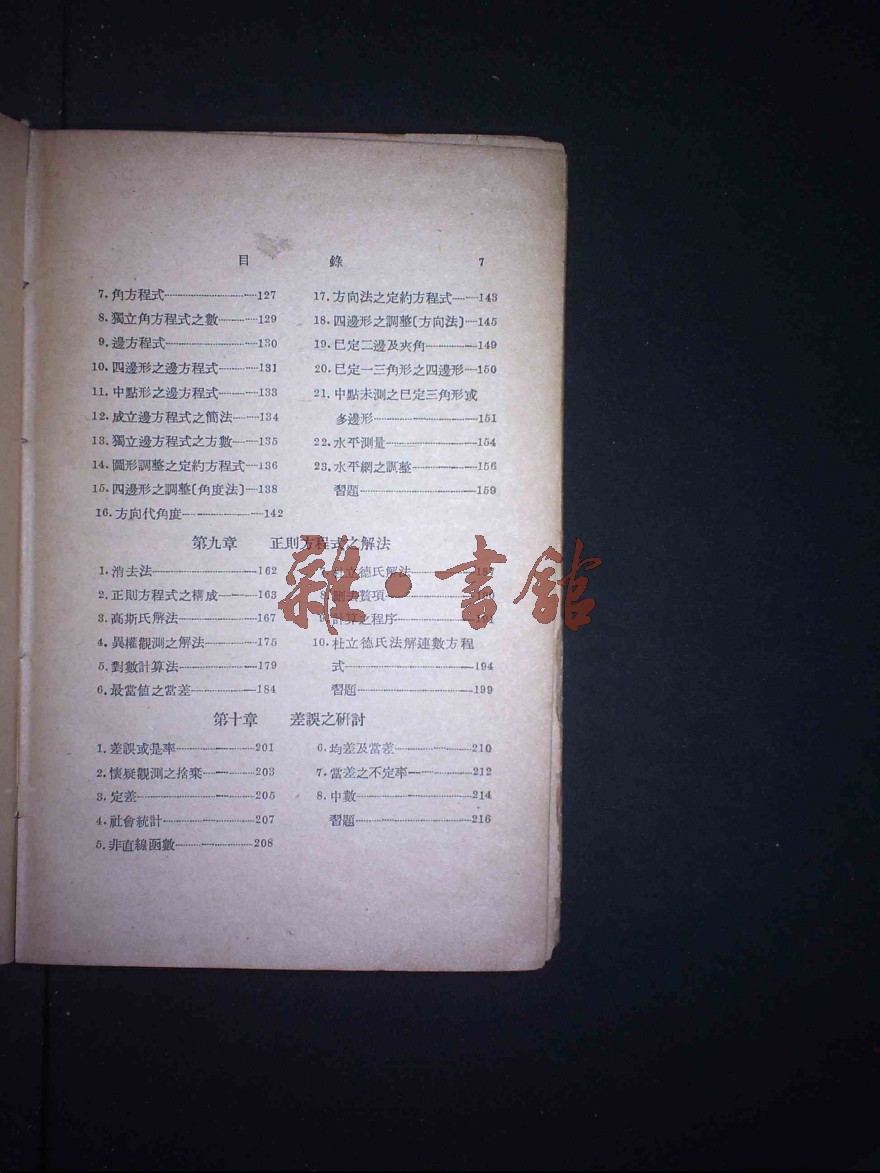 目錄 7
7. 角方程式 127
8. 獨立角方程式之數 129
9. 邊方程式 130
10. 四邊形之邊方程式 131
11. 中點形之邊方程式 133
12. 成立邊方程式之簡法 134
13. 獨立邊方程式之方數 135
14. 圖形調整之定約方程式 136
15. 四邊形之調整〔角度法〕 138
16. 方向代角度 142
17. 方向法之定約方程式 143
18. 四邊形之調整〔方向法〕 145
19. 已定二邊及夾角 149
20. 已定一三角形之四邊形 150
21. 中點未測之已定三角形或
多邊形 151
22. 水平測量 154
23. 水平網之調整 156
習題 159
第九章 正則方程式之解法
1. 消去法 162
2. 正則方程式之構成 163
3. 高斯氏解法 167
4. 異權觀測之解法 175
5. 對數計算法 179
6. 最當值之當差 184
杜立德氏解法
項
計算之程序
10. 杜立德氏法解連數方程
式 194
習題 199
雜·書館
第十章 差誤之研討
1. 差誤或是率 201
2. 懷疑觀測之捨棄 203
3. 定差 205
4. 社會統計 207
5. 非直線函數 208
6. 均差及當差 210
7. 當差之不定率 212
8. 中數 214
習題 216